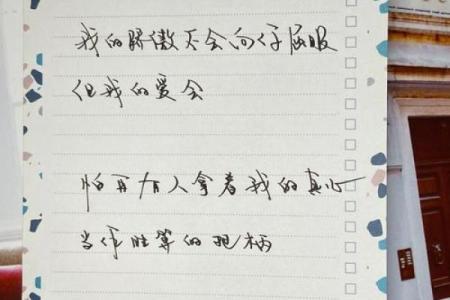 我的骄傲不会向你屈服
但我的爱会
怕再有人拿着我的真心
当作胜算的把柄